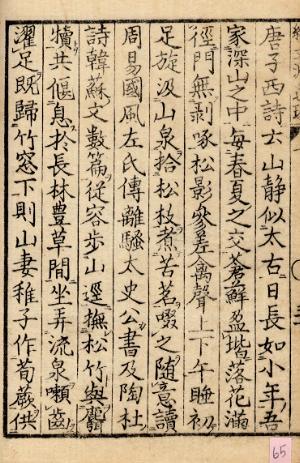 唐子西詩云山静似太古日長如小年吾
家深山之中每春夏之交蒼蘚盈堦落花滿
徑門無剥啄松影參差禽聲上下午睡初
足旋汲山泉拾松枝煮苦茗啜之随意讀
周易國風左氏傳離騷太史公書及陶杜
詩韓蘇文數篇從容步山逕撫松竹與麛
犢共偃息於長林豊草間坐弄流泉嗽齒
濯足既歸竹窓下則山妻稚子作筍蕨供
65